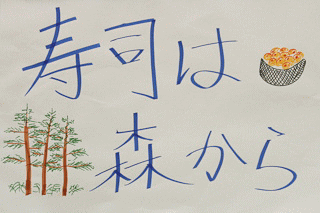 寿司は
森から